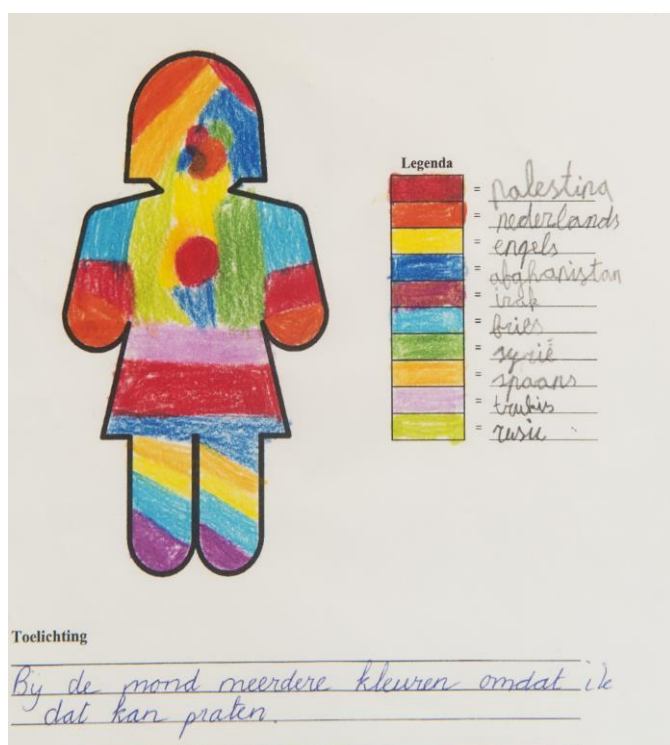 Legenda
= palestina
= nederlands
= engels
= afghanistan
= irak
= fries
= syrië
= spaans
= trukis
= rusii
Toelichting
Bij de mond meerdere kleuren omdat ik
dat kan praten.